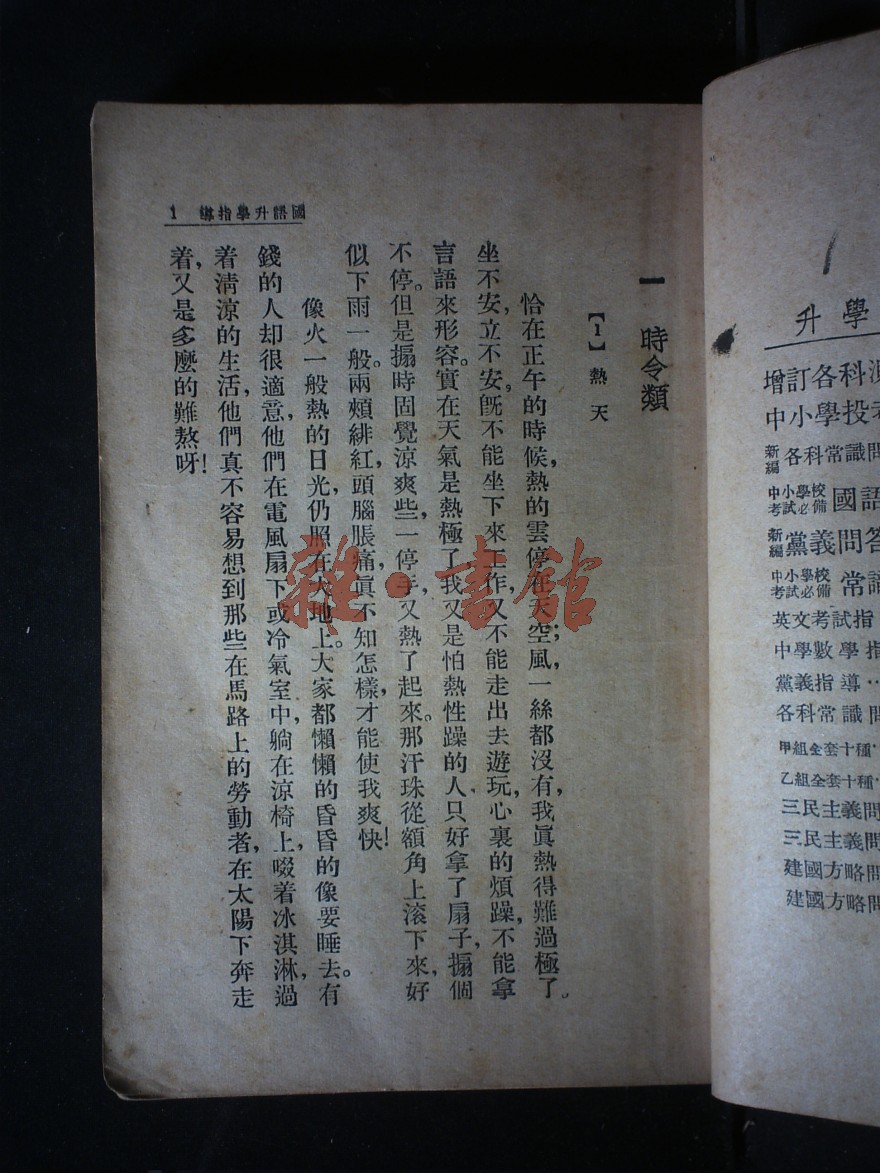 國語升學指導 1
一 時令類
【1】 熱天
恰在正午的時候，熱的雲停在天空；風，一絲都沒有，我眞熱得難過極了。
坐不安，立不安。旣不能坐下來工作，又不能走出去遊玩，心裏的煩躁，不能拿
言語來形容。實在天氣是熱極了，我又是怕熱性躁的人，只好拿了扇子，搧個
不停。但是搧時固覺涼爽些，一停手，又熱了起來。那汗珠從額角上滚下來，好
似下雨一般。兩頰緋紅，頭腦脹痛，眞不知怎樣，才能使我爽快！
像火一般熱的日光，仍照在大地上。大家都懶懶的昏昏的像要睡去。有
錢的人却很適意，他們在電風扇下或冷氣室中，躺在涼椅上，啜着冰淇淋，過
着清涼的生活，他們真不容易想到那些在馬路上的勞動者，在太陽下奔走
着，又是多麼的難熬呀！
雜·書館
升學
增訂各科
中小學投考
新編各科常識問
中小學校考試必備國語
新編黨義問答
中小學校考試必備常識
英文考試指
中學數學指
黨義指導··
各科常識問
甲組全套十種·
乙組全套十種·
三民主義問
三民主義問
建國方略問
建國方略問